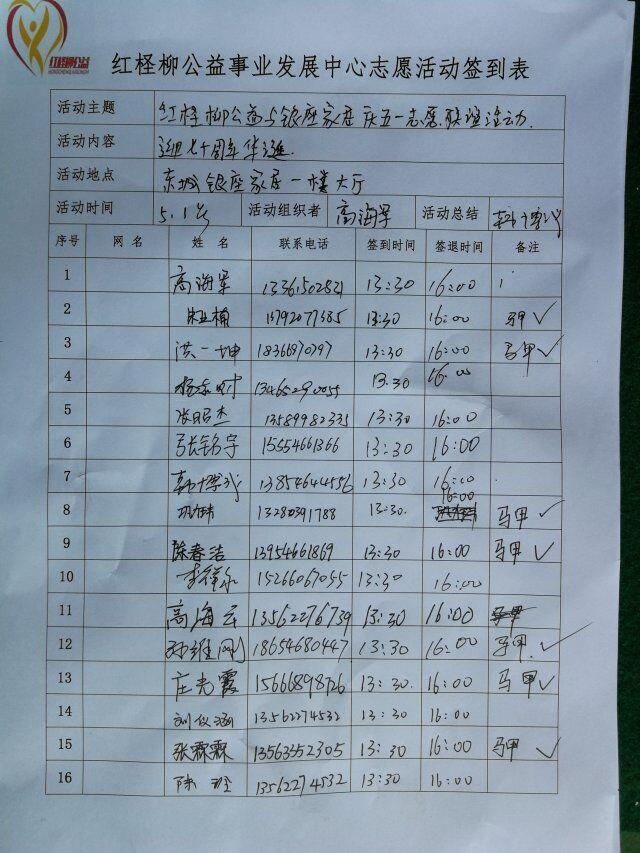 红柽柳公益事业发展中心志愿活动签到表
活动主题 红柽柳公益与银座家居庆五一志愿联谊活动.
活动内容 迎七十周年华诞.
活动地点 东城银座家居一楼大厅
活动时间 5.1号 活动组织者 高海军 活动总结
序号 网 名 姓 名 联系电话 签到时间 签退时间 备注
1 高海军 13:30 16:00
2 13792077385 13:30 16:00 马甲 ✓
3 洪一坤 13:30 16:00 马甲 ✓
4 13465290055 13.30 16:00
5 张昭杰 13589982335 13:30 16:00
6 张铭宇 15554661366 13:30 16:00
7 13854644556 13:30 16:00
8 13280391788 13:30. 16:00 马甲 ✓
9 陈春洁 13954661869 13:30 16:00 马甲 ✓
10 15266067055 13:30 16:00
11 高海云 13562276739 13:30 16:00
12 孙维刚 18654680447 13:30 16:00 马甲. ✓
13 庄光霞 15666898726 13:30. 16:00 马甲 ✓
14 刘仪涵 13562274532 13:30 16:00
15 张霖霖 13563552305 13:30 16:00 马甲 ✓
16 13562274532 13:30 16:00